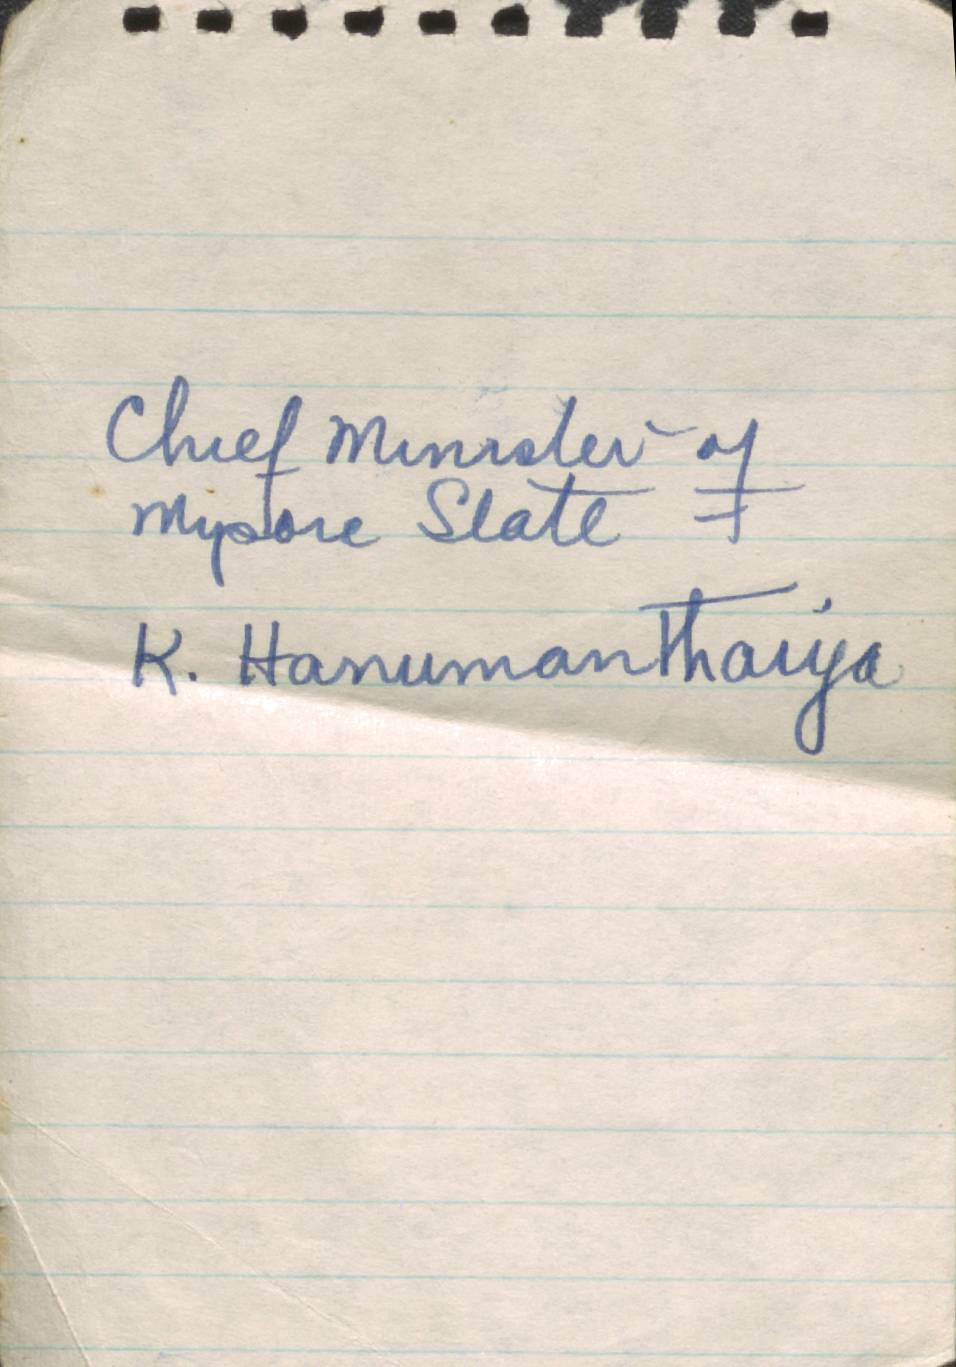 Chief Minister of
Mysore State
K. Hanumanthaiya